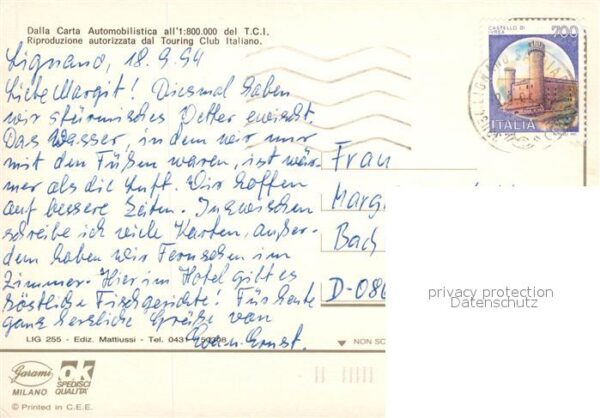 Dalla Carta Automobilistica all'1:800.000 del T.C.I.
Riproduzione autorizzata dal Touring Club Italiano.
CASTELLO DI
IVREA
700
ITALIA
Lignano, 18.9.94
Liebe Margit! Diesmal haben
wir stürmisches Wetter erwischt.
Das Wasser, in dem wir nur
mit den Füßen waren, ist wär-
mer als die Luft. Wir hoffen
auf bessere Zeiten. Inzwischen
schreibe ich viele Karten, außer-
dem haben wir Fernsehen im
Zimmer. Hier im Hotel gibt es
köstliche Fischgerichte! Für heute
ganz herzliche Grüße von
Ernst.
Frau
Marg
Bach
D-086
privacy protection
Datenschutz
LIG 255 - Ediz. Mattiussi - Tel. 0431
NON SC
Garami
MILANO
OK
SPEDISCI
QUALITA'
© Printed in C.E.E.